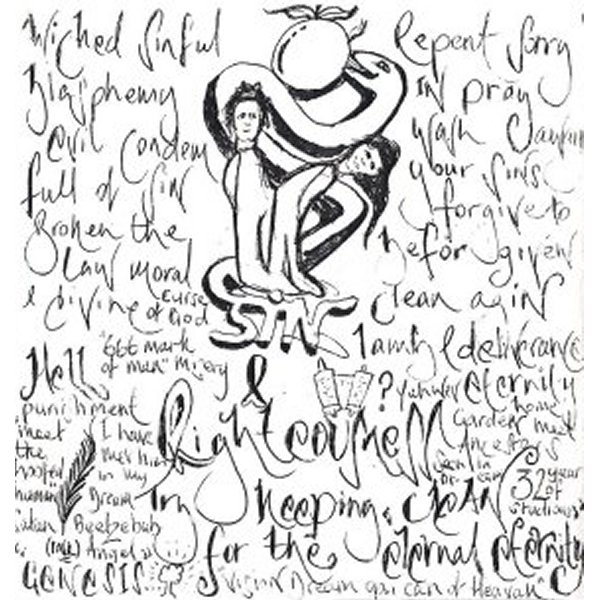 Wicked Sinful
Blasphemy
evil Condem
full of Sin
Broken the
Law moral
& divine curse
of God
Hell "666 mark
of man" Misery
punishment
meet
the
I have
met him
in my
Dream
human
Satan Beelzebub
Angel
GENESIS
Repent Sorry
IN pray
wash
your Sins
forgive to
be for given
clean agin
I am
deliverance
? Yahwer eternity
home
Garden meet
Ancestors
32 year
of
SIN
&
Righteousness
Try keeping CLEAN
for the eternal eternity
"Vision Dream can of Heavah"